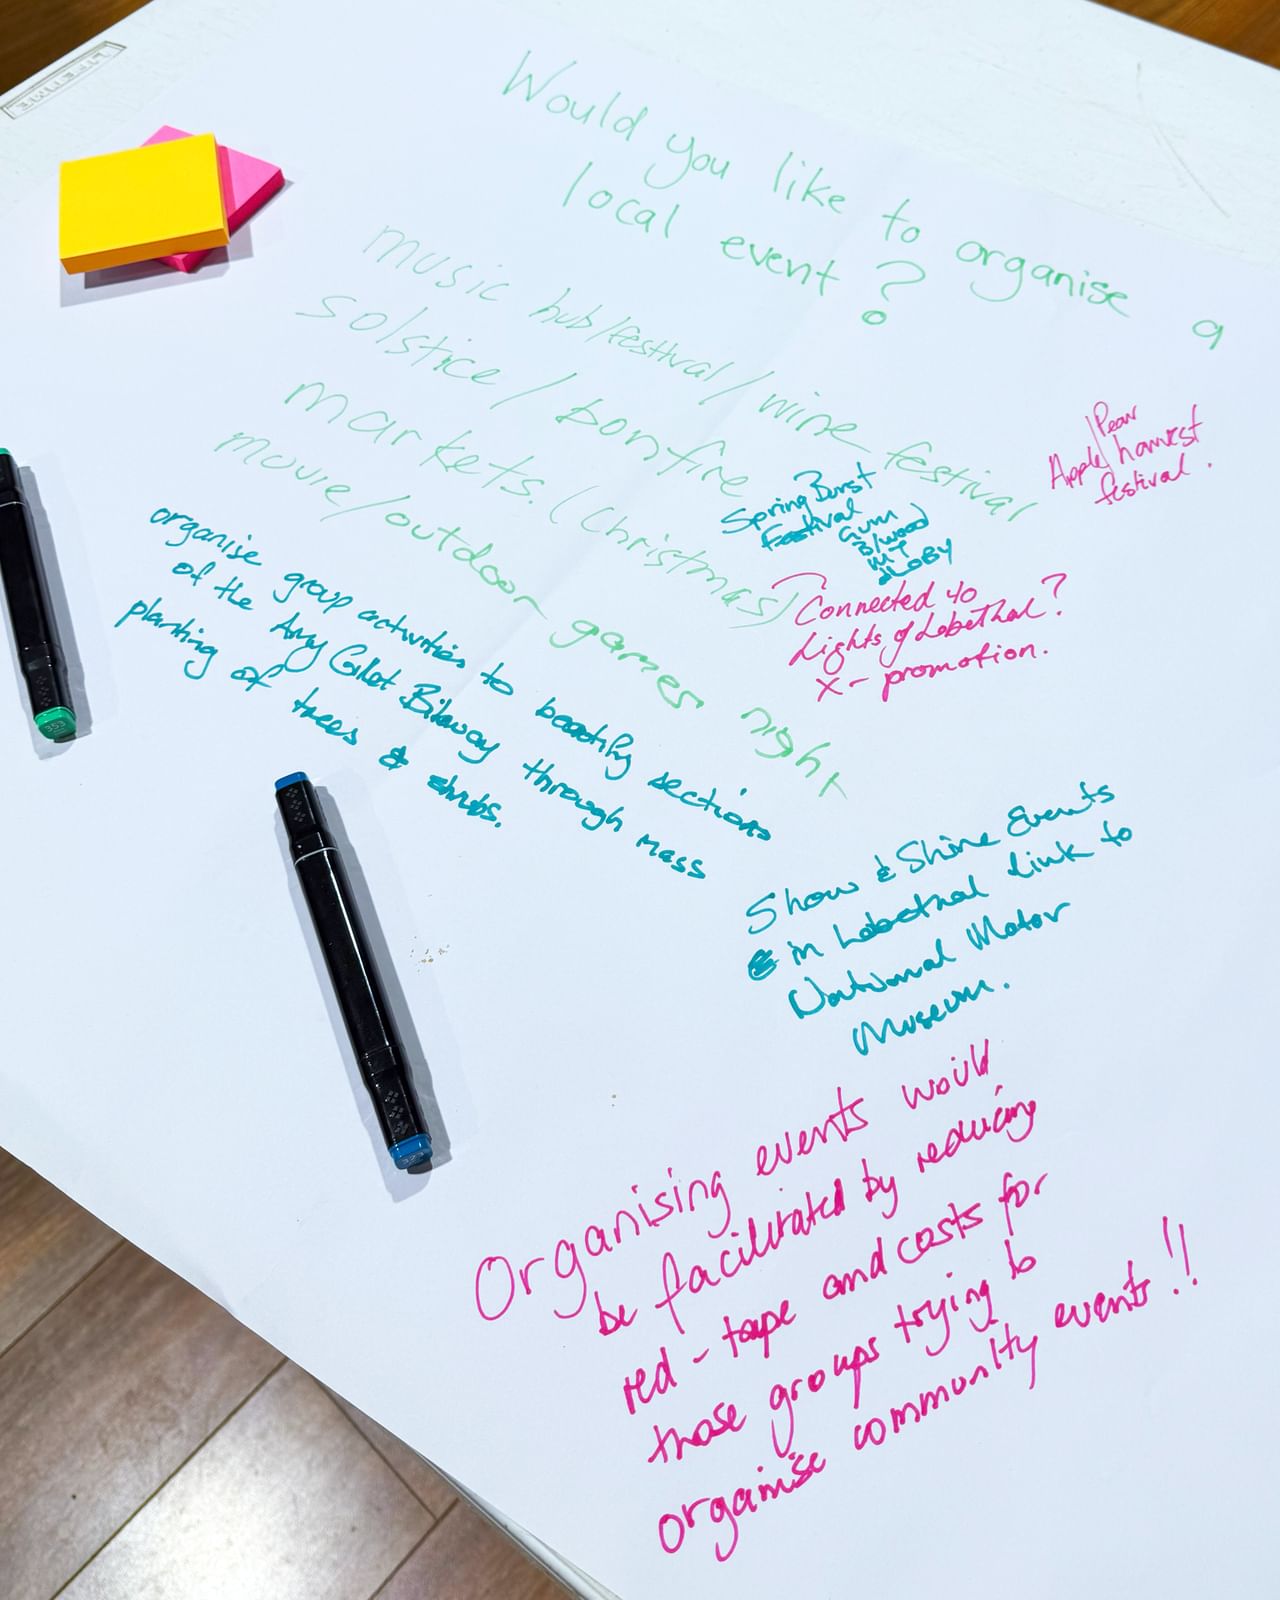 LIFETIME
Would you like to organise a
local event?
music hub/festival/wine festival
solstice/bonfire
markets. (Christmas)
movie/outdoor games night
Apple/Pear
harvest
festival.
Spring Burst
Festival
Gum
B/wood
MT
Connected to
Lights of Lobethal?
X-promotion.
organise group activities to beautify sections
of the Amy Gillet Bikway through mass
planting of trees & shrubs.
Show & Shine Events
in Lobethal link to
National Motor
Museum.
Organising events would
be facilitated by reducing
red-tape and costs for
those groups trying to
organise community events!!
353